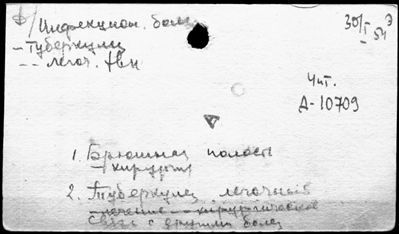 Инфекцион. бол.
– Туберкулез
– – легоч.
30/I 54
Чит.
Д-10709
1. Брюшная полость
– хирургия
2. Туберкулез легочный
– лечение – хирургическое
Связь с другими болез